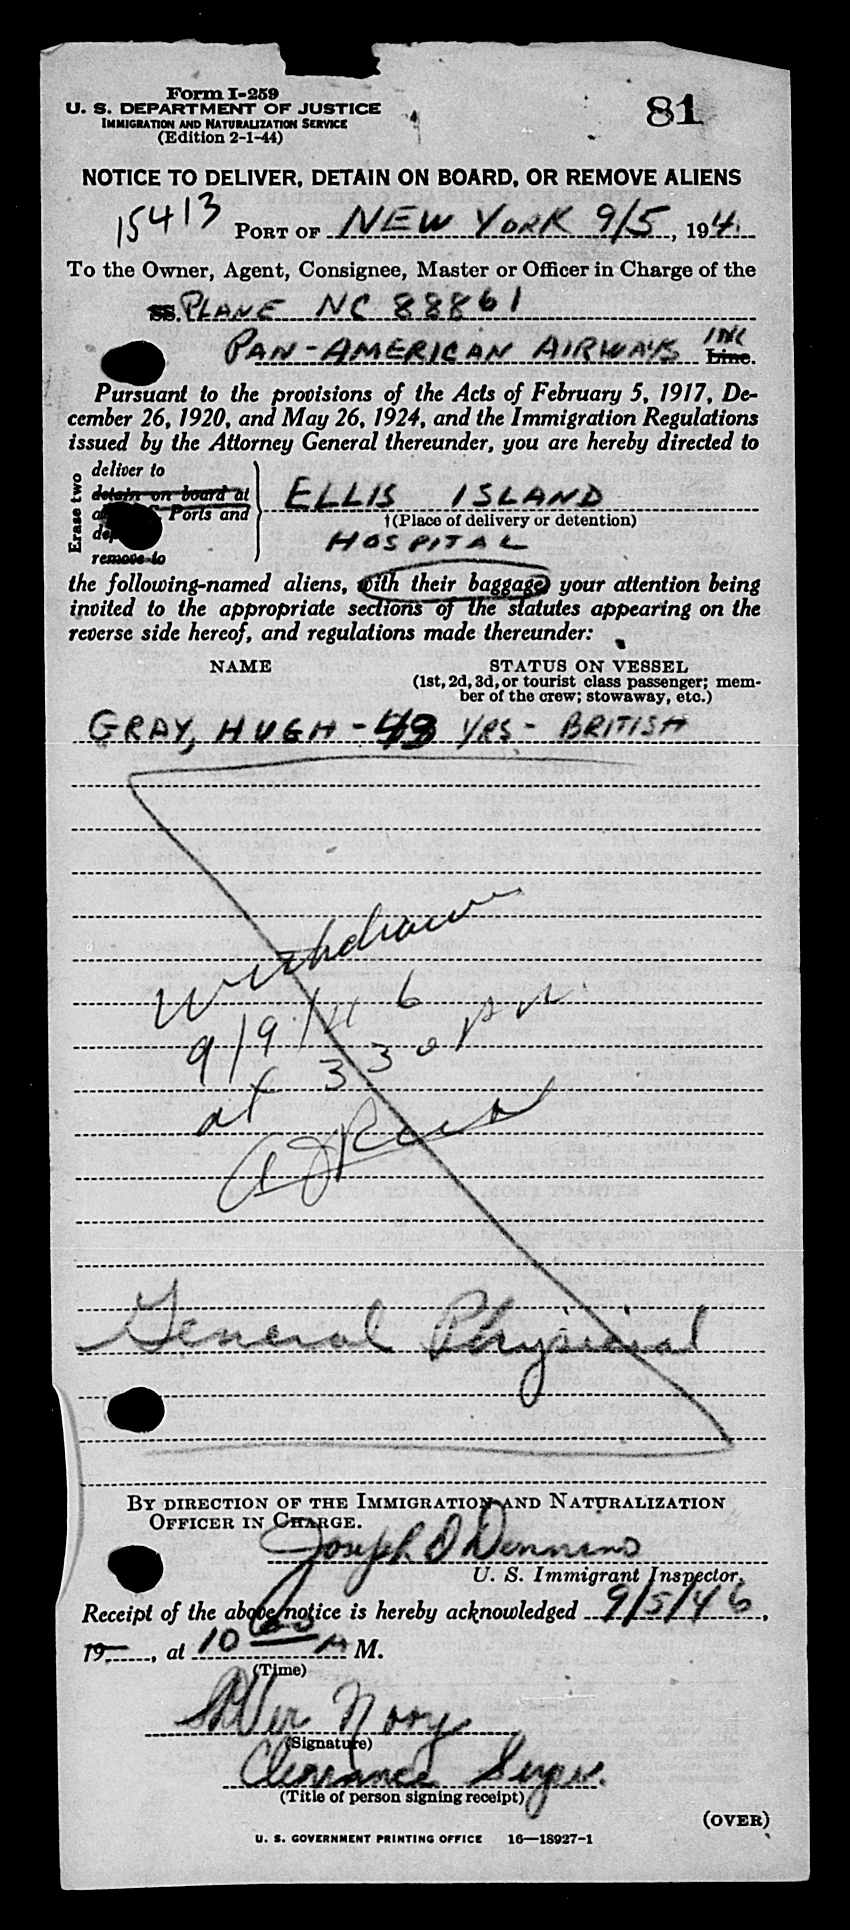 Form I-259
U. S. DEPARTMENT OF JUSTICE
IMMIGRATION AND NATURALIZATION SERVICE
(Edition 2-1-44)
81
NOTICE TO DELIVER, DETAIN ON BOARD, OR REMOVE ALIENS
15413 PORT OF NEW YORK 9/5, 194
To the Owner, Agent, Consignee, Master or Officer in Charge of the
SS. PLANE NC 88861
PAN-AMERICAN AIRWAYS INC Line.
Pursuant to the provisions of the Acts of February 5, 1917, De-
cember 26, 1920, and May 26, 1924, and the Immigration Regulations
issued by the Attorney General thereunder, you are hereby directed to
Erase two
deliver to
detain on board at
Ports and
remove to
ELLIS ISLAND
†(Place of delivery or detention)
HOSPITAL
the following-named aliens, with their baggage, your attention being
invited to the appropriate sections of the statutes appearing on the
reverse side hereof, and regulations made thereunder:
NAME
STATUS ON VESSEL
(1st, 2d, 3d, or tourist class passenger; mem-
ber of the crew; stowaway, etc.)
GRAY, HUGH - 43 YRS - BRITISH
Withdrawn
9/9/46
at 330 pm
General Physicial
BY DIRECTION OF THE IMMIGRATION AND NATURALIZATION
OFFICER IN CHARGE.
Joseph D Dennino
U. S. Immigrant Inspector.
Receipt of the above notice is hereby acknowledged 9/5/46,
19, at 10 00 A M.
(Time)
(Signature)
Clearance Super.
(Title of person signing receipt)
(OVER)
U. S. GOVERNMENT PRINTING OFFICE 16—18927-1